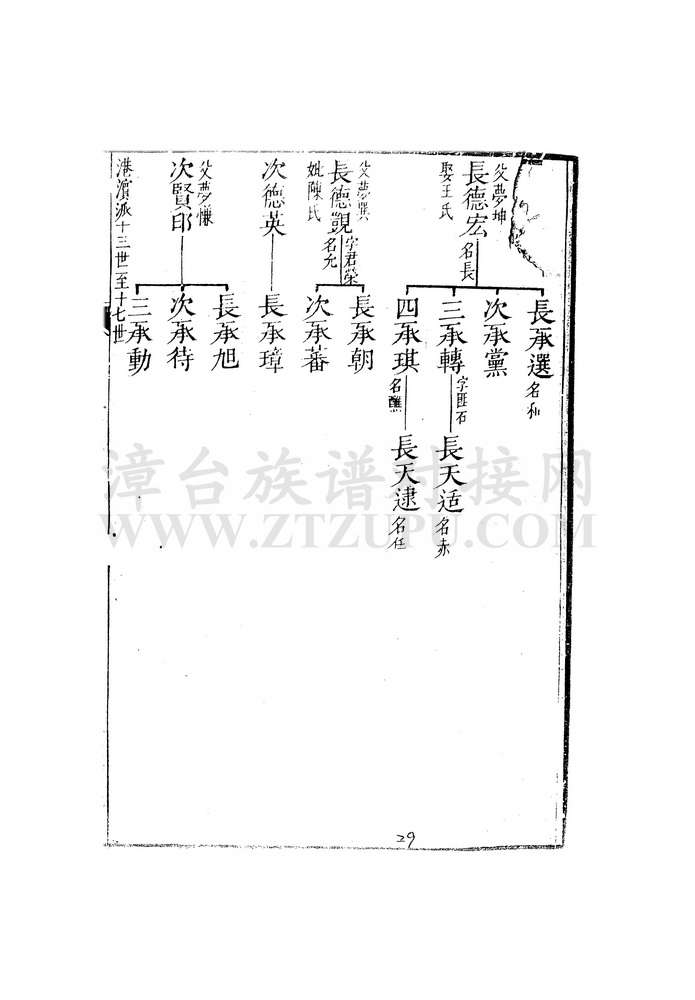 父夢坤
長德宏
名長
娶王氏
長承選
名和
次承黨
三承轉
字匪石
長天适
名赤
四承琪
長天逮
名任
父夢
長德觀
字君榮
名允
妣陳氏
長承朝
次承蕃
次德英
長承璋
父夢慊
次賢卭
長承旭
次承待
三承動
港濱派十三世至十七世
漳台族谱对接网
WWW.ZTZUPU.COM
29